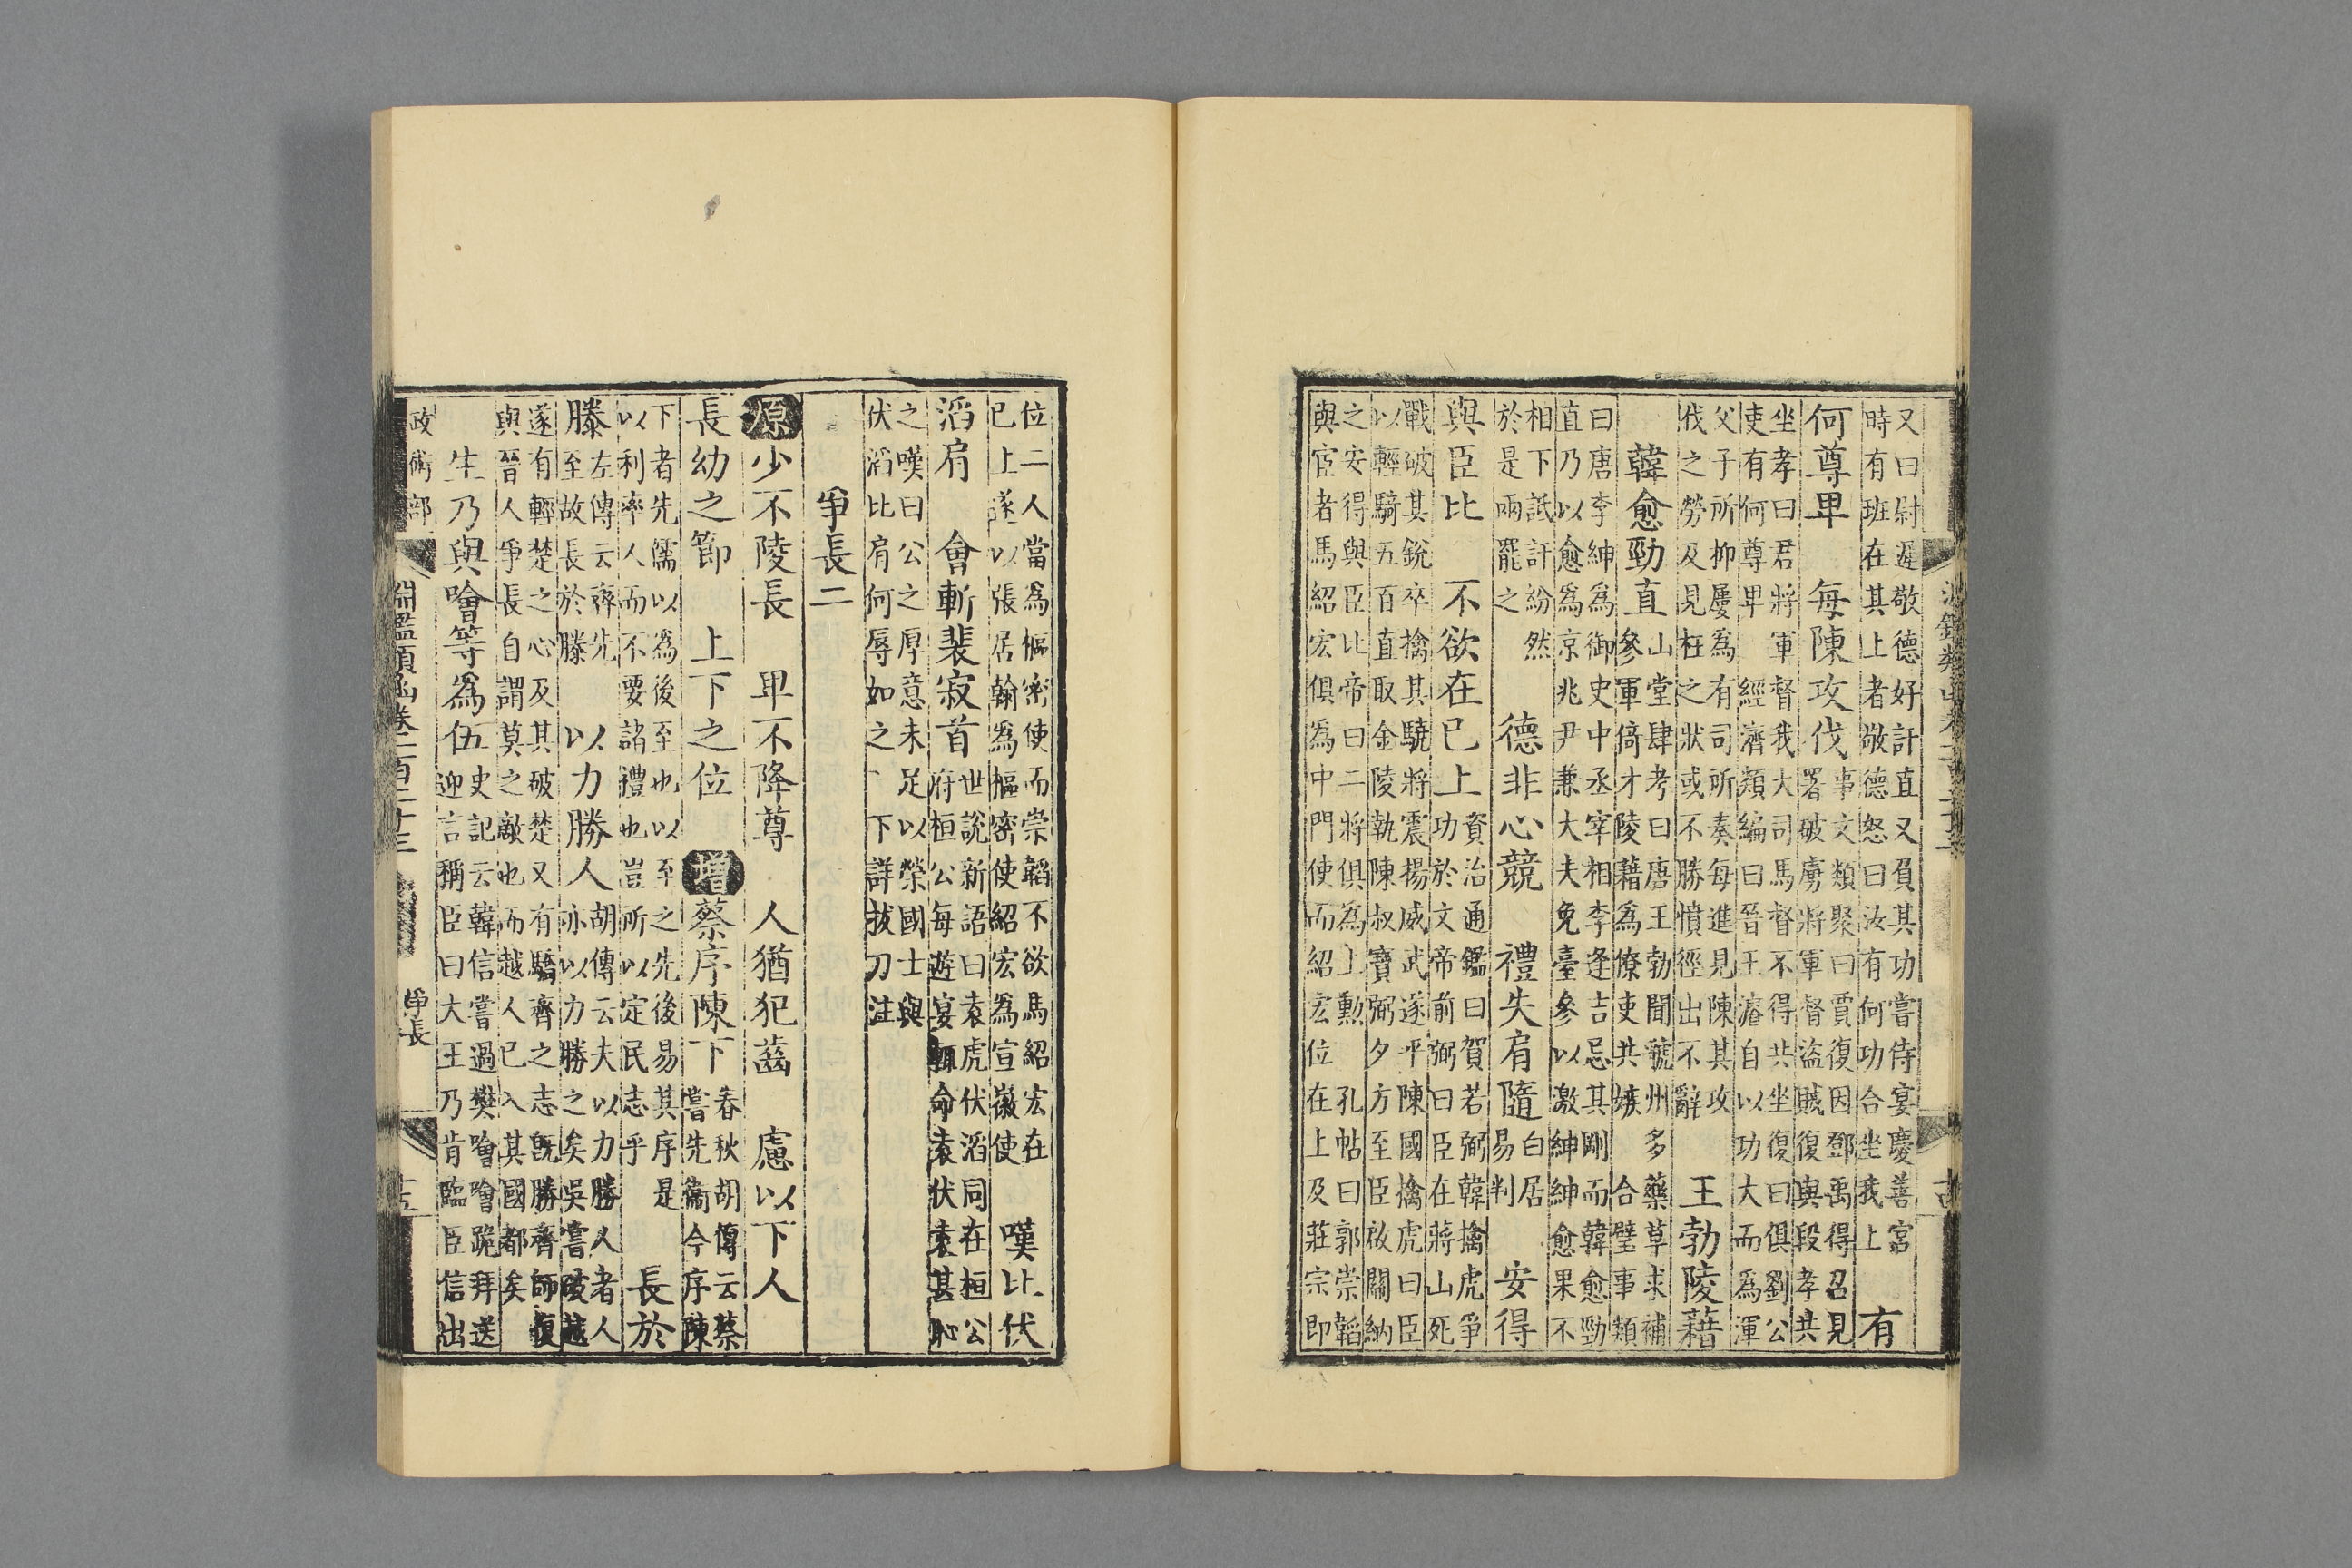 又曰尉遲敬德好訐直又負其功嘗侍宴慶善宮
時有班在其上者敬德怒曰汝有何功合坐我上
有
何尊卑
每陳攻伐
事文類聚曰賈復因鄧禹得召見
署破虜將軍督盜賊復與段孝共
坐孝曰君將軍督我大司馬督不得共坐復曰俱劉公
吏有何尊卑
經濟類編曰晉王濬自以功大而為渾
父子所抑屢為有司所奏每進見陳其攻
伐之勞及見枉之狀或不勝憤徑出不辭
王勃陵藉
山堂肆考曰唐王勃聞虢州多藥草求補
參軍倚才陵藉為僚吏共嫉
合璧事類
韓愈勁直
曰唐李紳為御史中丞宰相李逢吉忌其剛而韓愈勁
直乃以愈為京兆尹兼大夫免臺參以激紳紳愈果不
相下詆訐紛然
於是兩罷之
德非心競
禮失肩隨
白居
易判
安得
與臣比
不欲在已上
資治通鑑曰賀若弼韓擒虎爭
功於文帝前弼曰臣在蔣山死
戰破其銳卒擒其驍將震揚威武遂平陳國擒虎曰臣
以輕騎五百直取金陵執陳叔寶弼夕方至臣啟關納
之安得與臣比帝曰二將俱為上勳
孔帖曰郭崇韜
與宦者馬紹宏俱為中門使而紹宏位在上及莊宗即
位二人當為樞密使而崇韜不欲馬紹宏在
已上遂以張居翰為樞密使紹宏為宣徽使
嘆比伏
滔肩
會斬裴寂首
世說新語曰袁虎伏滔同在桓公
府桓公每遊宴輒命袁伏袁甚恥
之嘆曰公之厚意未足以榮國士與
伏滔比肩何辱如之
下詳拔刀注
爭長二
原少不陵長
卑不降尊
人猶犯齒
慮以下人
長幼之節
上下之位
增蔡序陳下
春秋胡傳云蔡
嘗先衞今序陳
下者先儒以為後至也以至之先後易其序是
以利率人而不要諸禮也豈所以定民志乎
長於
滕
左傳云齊先
至故長於滕
以力勝人
胡傳云夫以力勝人者人
亦以力勝之矣吳嘗破越
遂有輕楚之心及其破楚又有驕齊之志既勝齊師復
與晉人爭長自謂莫之敵也而越人已入其國都矣
生乃與噲等為伍
史記云韓信嘗過樊噲噲跪拜送
迎言稱臣曰大王乃肯臨臣信出
政術部
淵鑑類函卷二百二十三
爭長